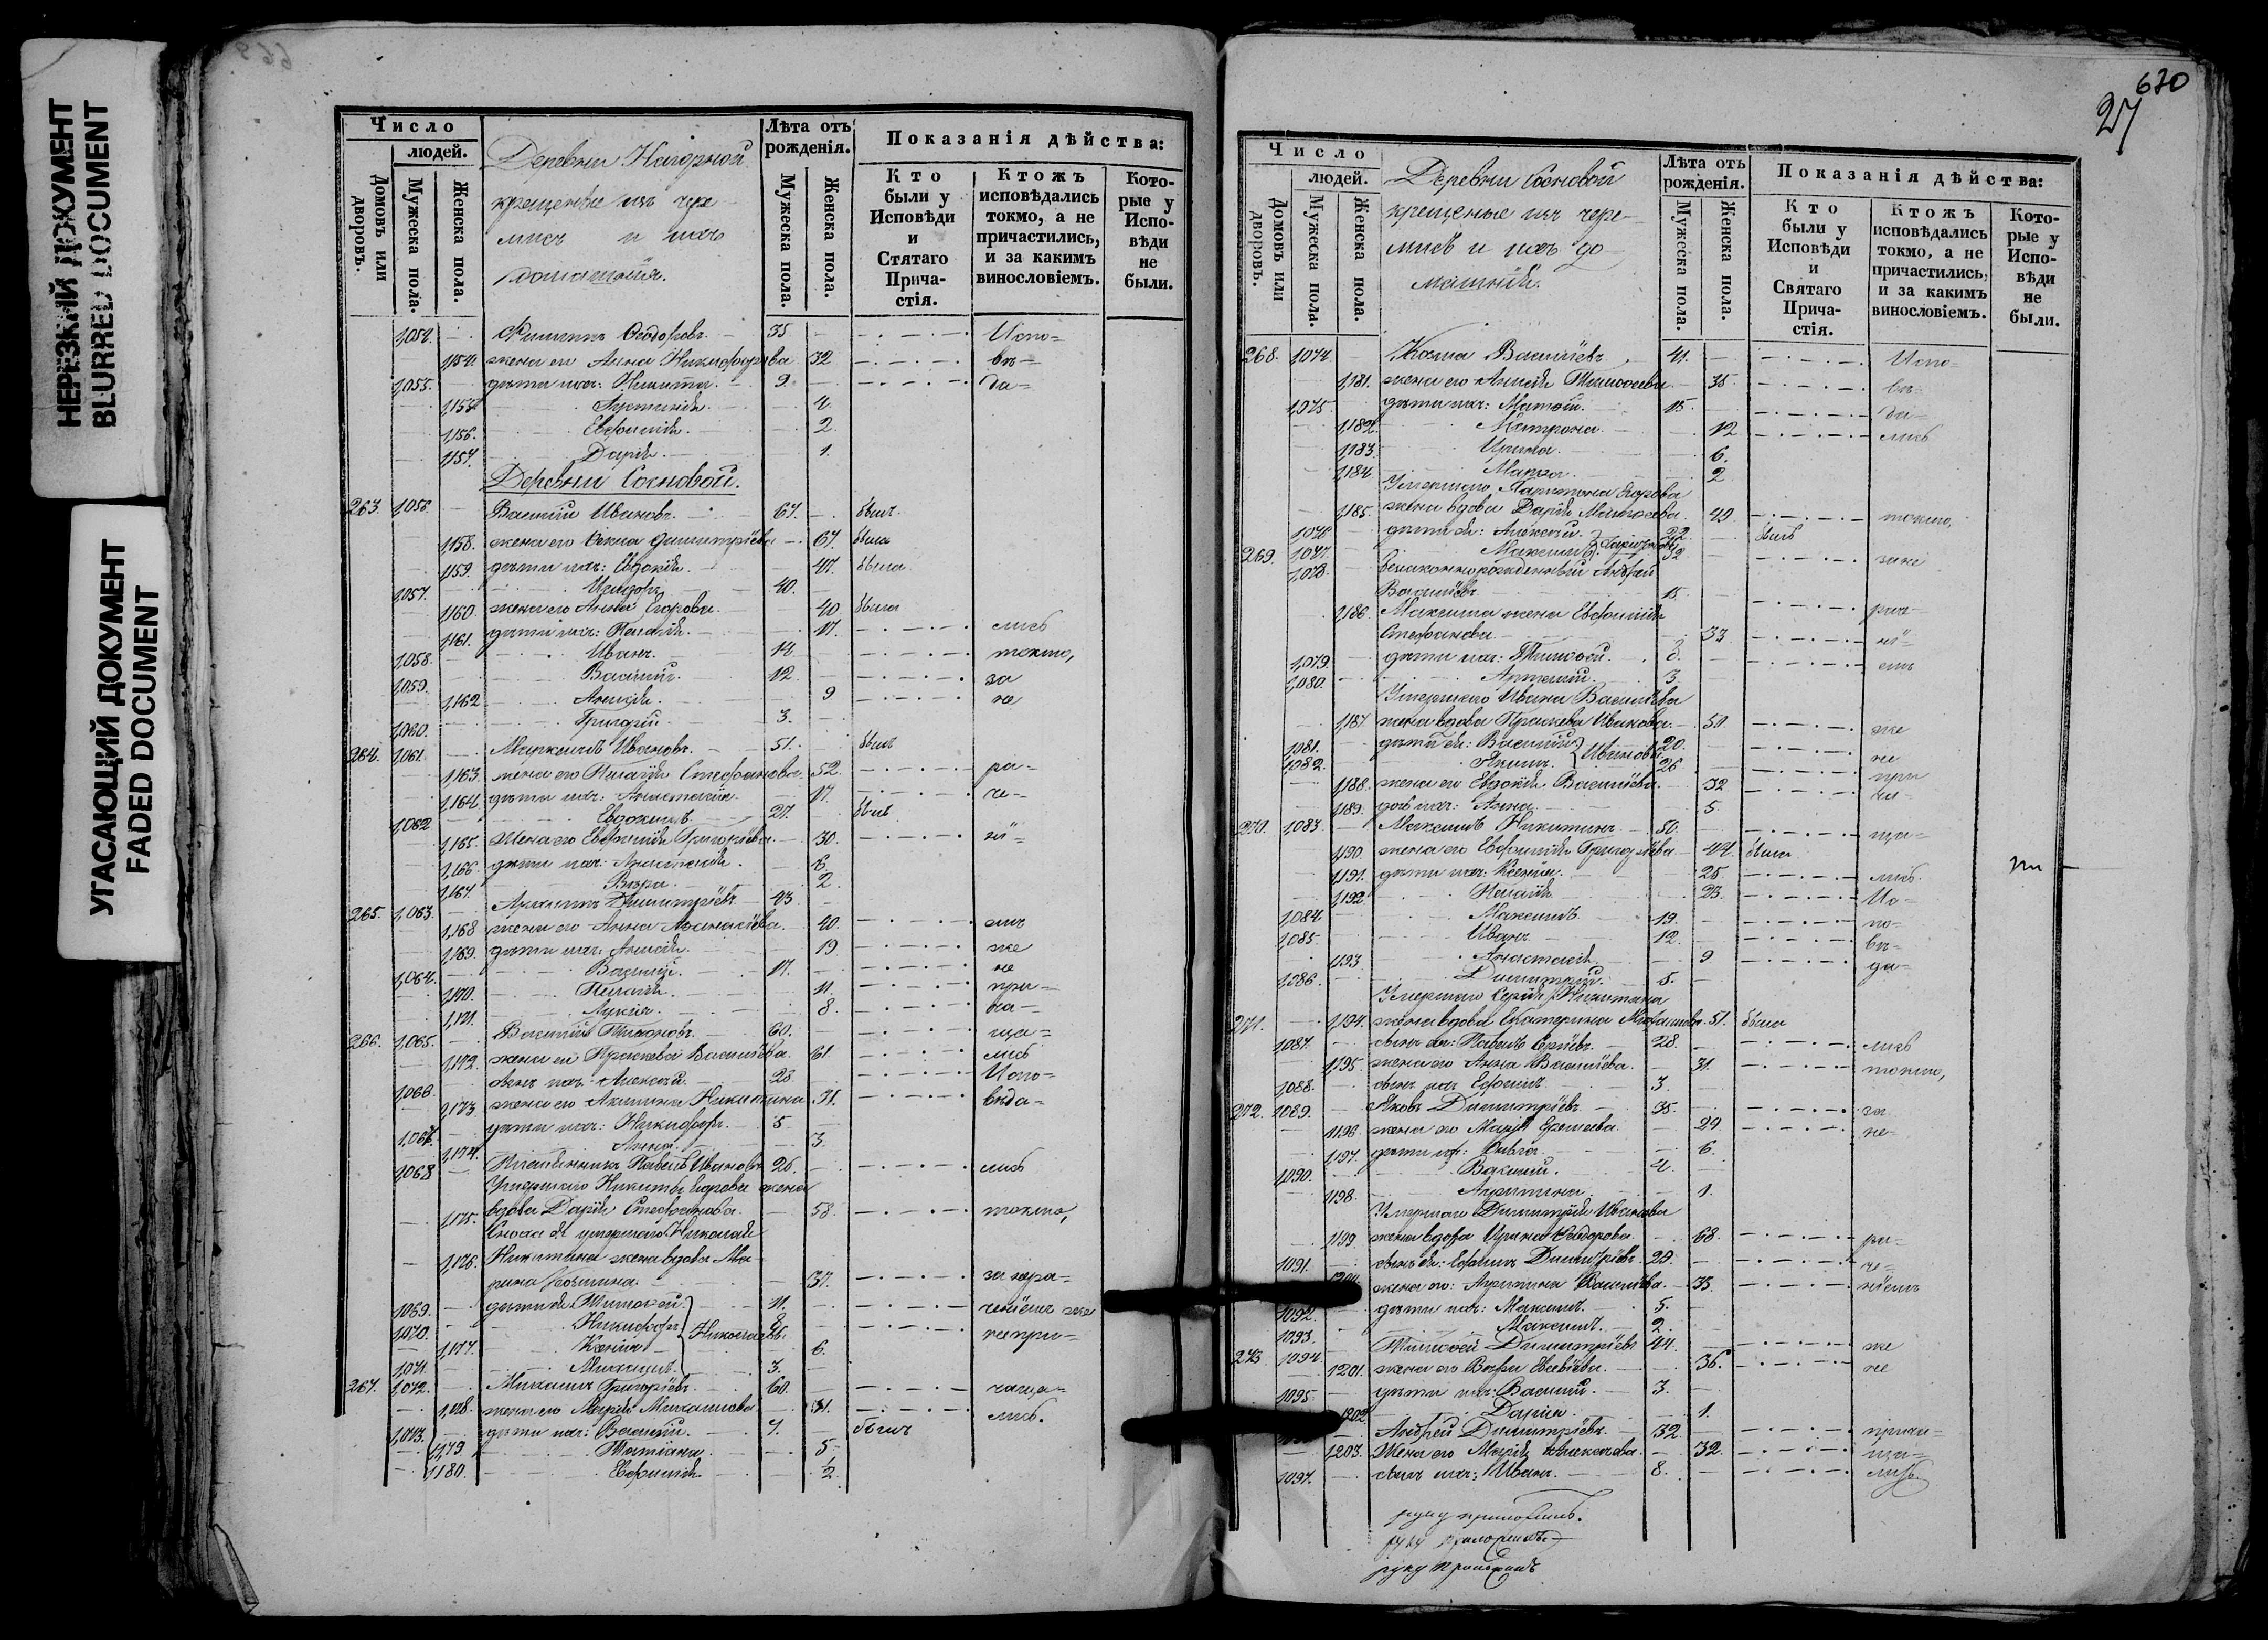 НЕРЕЗКИЙ ДОКУМЕНТ
BLURRED DOCUMENT
УГАСАЮЩИЙ ДОКУМЕНТ
FADED DOCUMENT
Число
людей.
Домовъ или дворовъ.
Мужеска пола.
Женска пола.
Деревни Нагорной
крещеные изъ чере-
мисъ и ихъ
домашнiя.
Лѣта отъ рожденiя.
Мужеска пола.
Женска пола.
Показанiя дѣйства:
Кто были у Исповѣди и Стятаго Прича-стiя.
Ктожъ исповѣдались токмо, а не причастились, и за какимъ винословiемъ.
Кото-рые у Испо-вѣди не были.
1054. Филиппъ Ѳеодоровъ. 35 Испо=
1154. жена его Анна Никифорова 32 вѣ=
1055. дѣти ихъ: Никита. 9. да=
1155 Аустинiя. 4.
1156. Евфимiя. 2.
1157. Дарiя. 1.
Деревни Сосновой.
263. 1056 Василiй Ивановъ. 67. былъ
1158. жена его Ѳекла Димитрiева 67. была
1159. дѣти ихъ: Евдокiя. 47. была
1057. Исидоръ 40.
1160 жена его Анна Егорова. 40. была
1161. дѣти ихъ: Пелагiя. 17. лись
1058. Иванъ. 14. токмо,
1059. Василiй. 12. за
1162 Анисiя. 9 не
1060. Григорiй 3.
264. 1061. Маркеллъ Ивановъ. 51. былъ
1163. жена его Пелагiя Стефанова. 52. ра=
1164. дѣти ихъ: Анастасiя. 17. че=
1062 Евдокимъ 27. былъ
1165. Жена его Евфимiя Григорiева. 30. нi=
1166. дѣти ихъ: Анастасiя. 6.
1167. Вѣра. 2.
265. 1063. Архиппъ Димитрiевъ 43.
1168 жена его Анна Аѳанасiева. 40. емъ
1169. дѣти ихъ: Анисiя. 19 же
1064. Василiй. 17. не
1170. Пелагiя. 11. при=
1171. Лукiя. 8. ча=
266. 1065. Василiй Тихоновъ. 60. ща=
1172. жена его Праскева Василiева. 61. лись
1066. сынъ ихъ: Алексѣй. 28 Испо=
1173 жена его Акилина Никитина 31. вѣда=
1067. дѣти ихъ: Никифоръ. 5
1174. Анна. 3.
1068 Племянникъ Павелъ Ивановъ 26. лись
Умершаго Никиты Егорова жена
1175. вдова Дарiя Стефанова. 58. токмо,
Сноха ея умершаго Николая
1176. Никитина жена вдова Ма-
рина Козмина. 37. за нера=
1069. дѣти ея Тимоѳей. 11. ченiемъ же
1070. Никифоръ Николаевы. 8 непри=
1177. Ксенiя 6.
1071. Михаилъ 3.
267. 1072. Михаилъ Григорiевъ. 60. чаща=
1178. жена его Марiя Михайлова. 31. лись.
1073. дѣти ихъ: Василiй. 7. былъ
1179 Татiана. 5
1180. Евфимiя. 2.
620
27
Число
людей.
Домовъ или дворовъ.
Мужеска пола.
Женска пола.
Деревни Сосновой
крещеные изъ чере-
мисъ и ихъ до-
машнiй.
Лѣта отъ рожденiя.
Мужеска пола.
Женска пола.
Показанiя дѣйства:
Кто были у Исповѣди и Святаго Прича-стiя.
Ктожъ исповѣдались токмо, а не причастились, и за какимъ винословiемъ.
Кото-рые у Испо-вѣди не были.
268. 1074. Козма Василiевъ. 41. Испо=
1181. жена его Анисiя Тимоѳеева 35. вѣ=
1075. дѣти ихъ: Матѳей. 15. да=
1182. Матрона. 12 лись
1183. Ирина. 6.
1184. Марѳа. 2
Умершаго Харитона Егорова
1185. жена вдова Дарiя Матѳеева. 49. токмо,
1076 дѣти ея: Алексѣй. 22. былъ
269. 1077. Максимъ Харитоновы 32 зане
1078. Незаконнорожденный Андрей
Василiевъ 15.
1186. Максима жена Евфимiя рач=
Стефанова 33 нi=
1079. дѣти ихъ: Тимоѳей. емъ
1080. Артемiй. 3.
Умершаго Ивана Василiева
1187 жена вдова Праскева Иванова. 50 же
1081. дѣти ея: Василiй 20. не
1082. Акимъ. Ивановы 26 при
1188. жена его Евдокiя Василiева. 32 ча=
1189. дочь ихъ: Анна. 5.
270. 1083. Максимъ Никитинъ. 50. ща=
1190. жена его Евфимiя Григорiева 44. была
1191. дѣти ихъ: Ксенiя. 25. лись.
1192. Пелагiя 23. Ис=
1084. Максимъ. 19. по=
1085. Иванъ. 12. вѣ=
1193 Анастасiя. 9 да=
1086. Димитрiй. 5.
Умершаго Сергiя Никитина
271. 1194. жена вдова Екатерина Михайлова 51. была
1087. сынъ ея: Павелъ Сергiевъ. 28. лись
1195. жена его Анна Василiева. 31. токмо,
1088. сынъ ихъ Ефимъ. 3.
272. 1089. Яковъ Димитрiевъ. 35. за
1196 жена его Марiя Еремеева. 29 не=
1197. дѣти ихъ: Ѳивiя. 6.
1090. Василiй. 4.
1198. Агрипина 1.
Умершаго Димитрiя Иванова
1199. жена вдова Ирина Ѳеодорова 68. ра=
1091. сынъ ея: Ефимъ Димитрiевъ 29. че=
жена его: Агрипина Василiева. 33. нiемъ
1092. дѣти ихъ: Максимъ. 5.
1093. Максимъ. 2.
273. 1094. Тимоѳей Димитрiевъ 44. же
1201. жена его Вѣра Евсевiева. 36. не
1095. дѣти ихъ: Василiй. 3.
1202 Дарiя. 1.
Андрей Димитрiевъ. 32. прича=
1203. Жена его Марiя Алексѣева. 32. ща=
1097. сынъ ихъ: Иванъ. 8. лись.
руку приложилъ.
руку приложилъ.
руку приложилъ